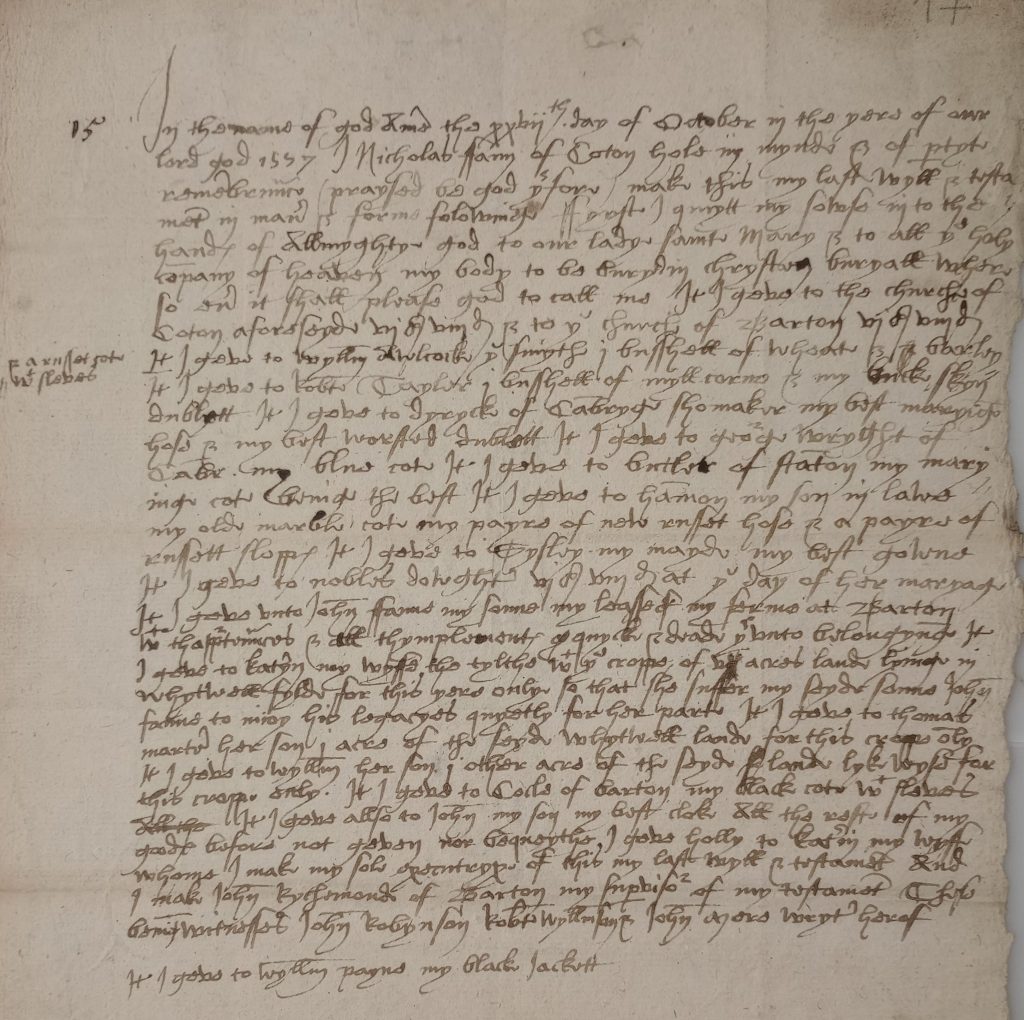 15
In the name of god Amē the xxvijth day of October in the yere of our
lord god 1557 I Nicholas ffann of Coton hole in mynde & of pfyte
remēbrance praysed be god yrfore make this my last wyll & testa
mēt in manr & forme folowinge ffyrste I quytt my sowle in to the
hands of Allmyghtye god to our ladye sainte Mary & to all ye holy
cōpany of heaven my body to be buryd in chrysten buryall where
so evr it shall please god to call me It I geve to the churche of
Coton aforeseyde vjs viijd & to ye churche of Barton vjs viijd
& a russet cote
wt sleves
It I geve to wyllm Awlcocke ye smythe j busshell of wheate & barley
It I geve to Robte Tayler j busshell of myll corne & my bucke skyn
dublett It I geve to dyrycke of Cābryge shomaker my best maryige
hose & my best worsted dublett It I geve to george wryght of
Cābr. my blue cote It I geve to butler of stāton my mary
inge cote beinge the best It I geve to hāmon my son in lawe
my olde marble cote my payre of new russet hose & a payre of
russett slopps It I geve to Tysley my mayde my best gowne
It I geve to nobles dowghtr vjs viijd at ye day of her maryage
It I geve unto John ffanne my sonne my lease of my ferme at Barton
wt thaprtennces & all thymplements quycke & deade yr unto belongynge It
I geve to katryn my wyffe the tylthe wt ye croppe of acres lande lyinge in
whytwell fylde for this yere onlye so that she suffer my seyde sonne John
fanne to injoy his legacyes quyetly for her parte It I geve to thomas
martēr her son j acre of the seyde whytwell lande for this croppe ōly
It I geve to wyllm her son j other acre of the seyde lande lyke wyse for
this croppe only. It I geve to Cocle of barton my black cote wt sleves
All the It I geve allso to John my son my best cloke All the reste of my
goods before not geven nor bequeythe, I geve holly to katryn my wyffe
whome I make my sole executryxe of this my last wyll & testamēt And
I make John Rychemonde of Barton my supvisor of my testamēt These
beinge witnesses John Robynson Robte wyllmson & John more wrytr herof
It I geve to wyllm payne my blacke Jackett